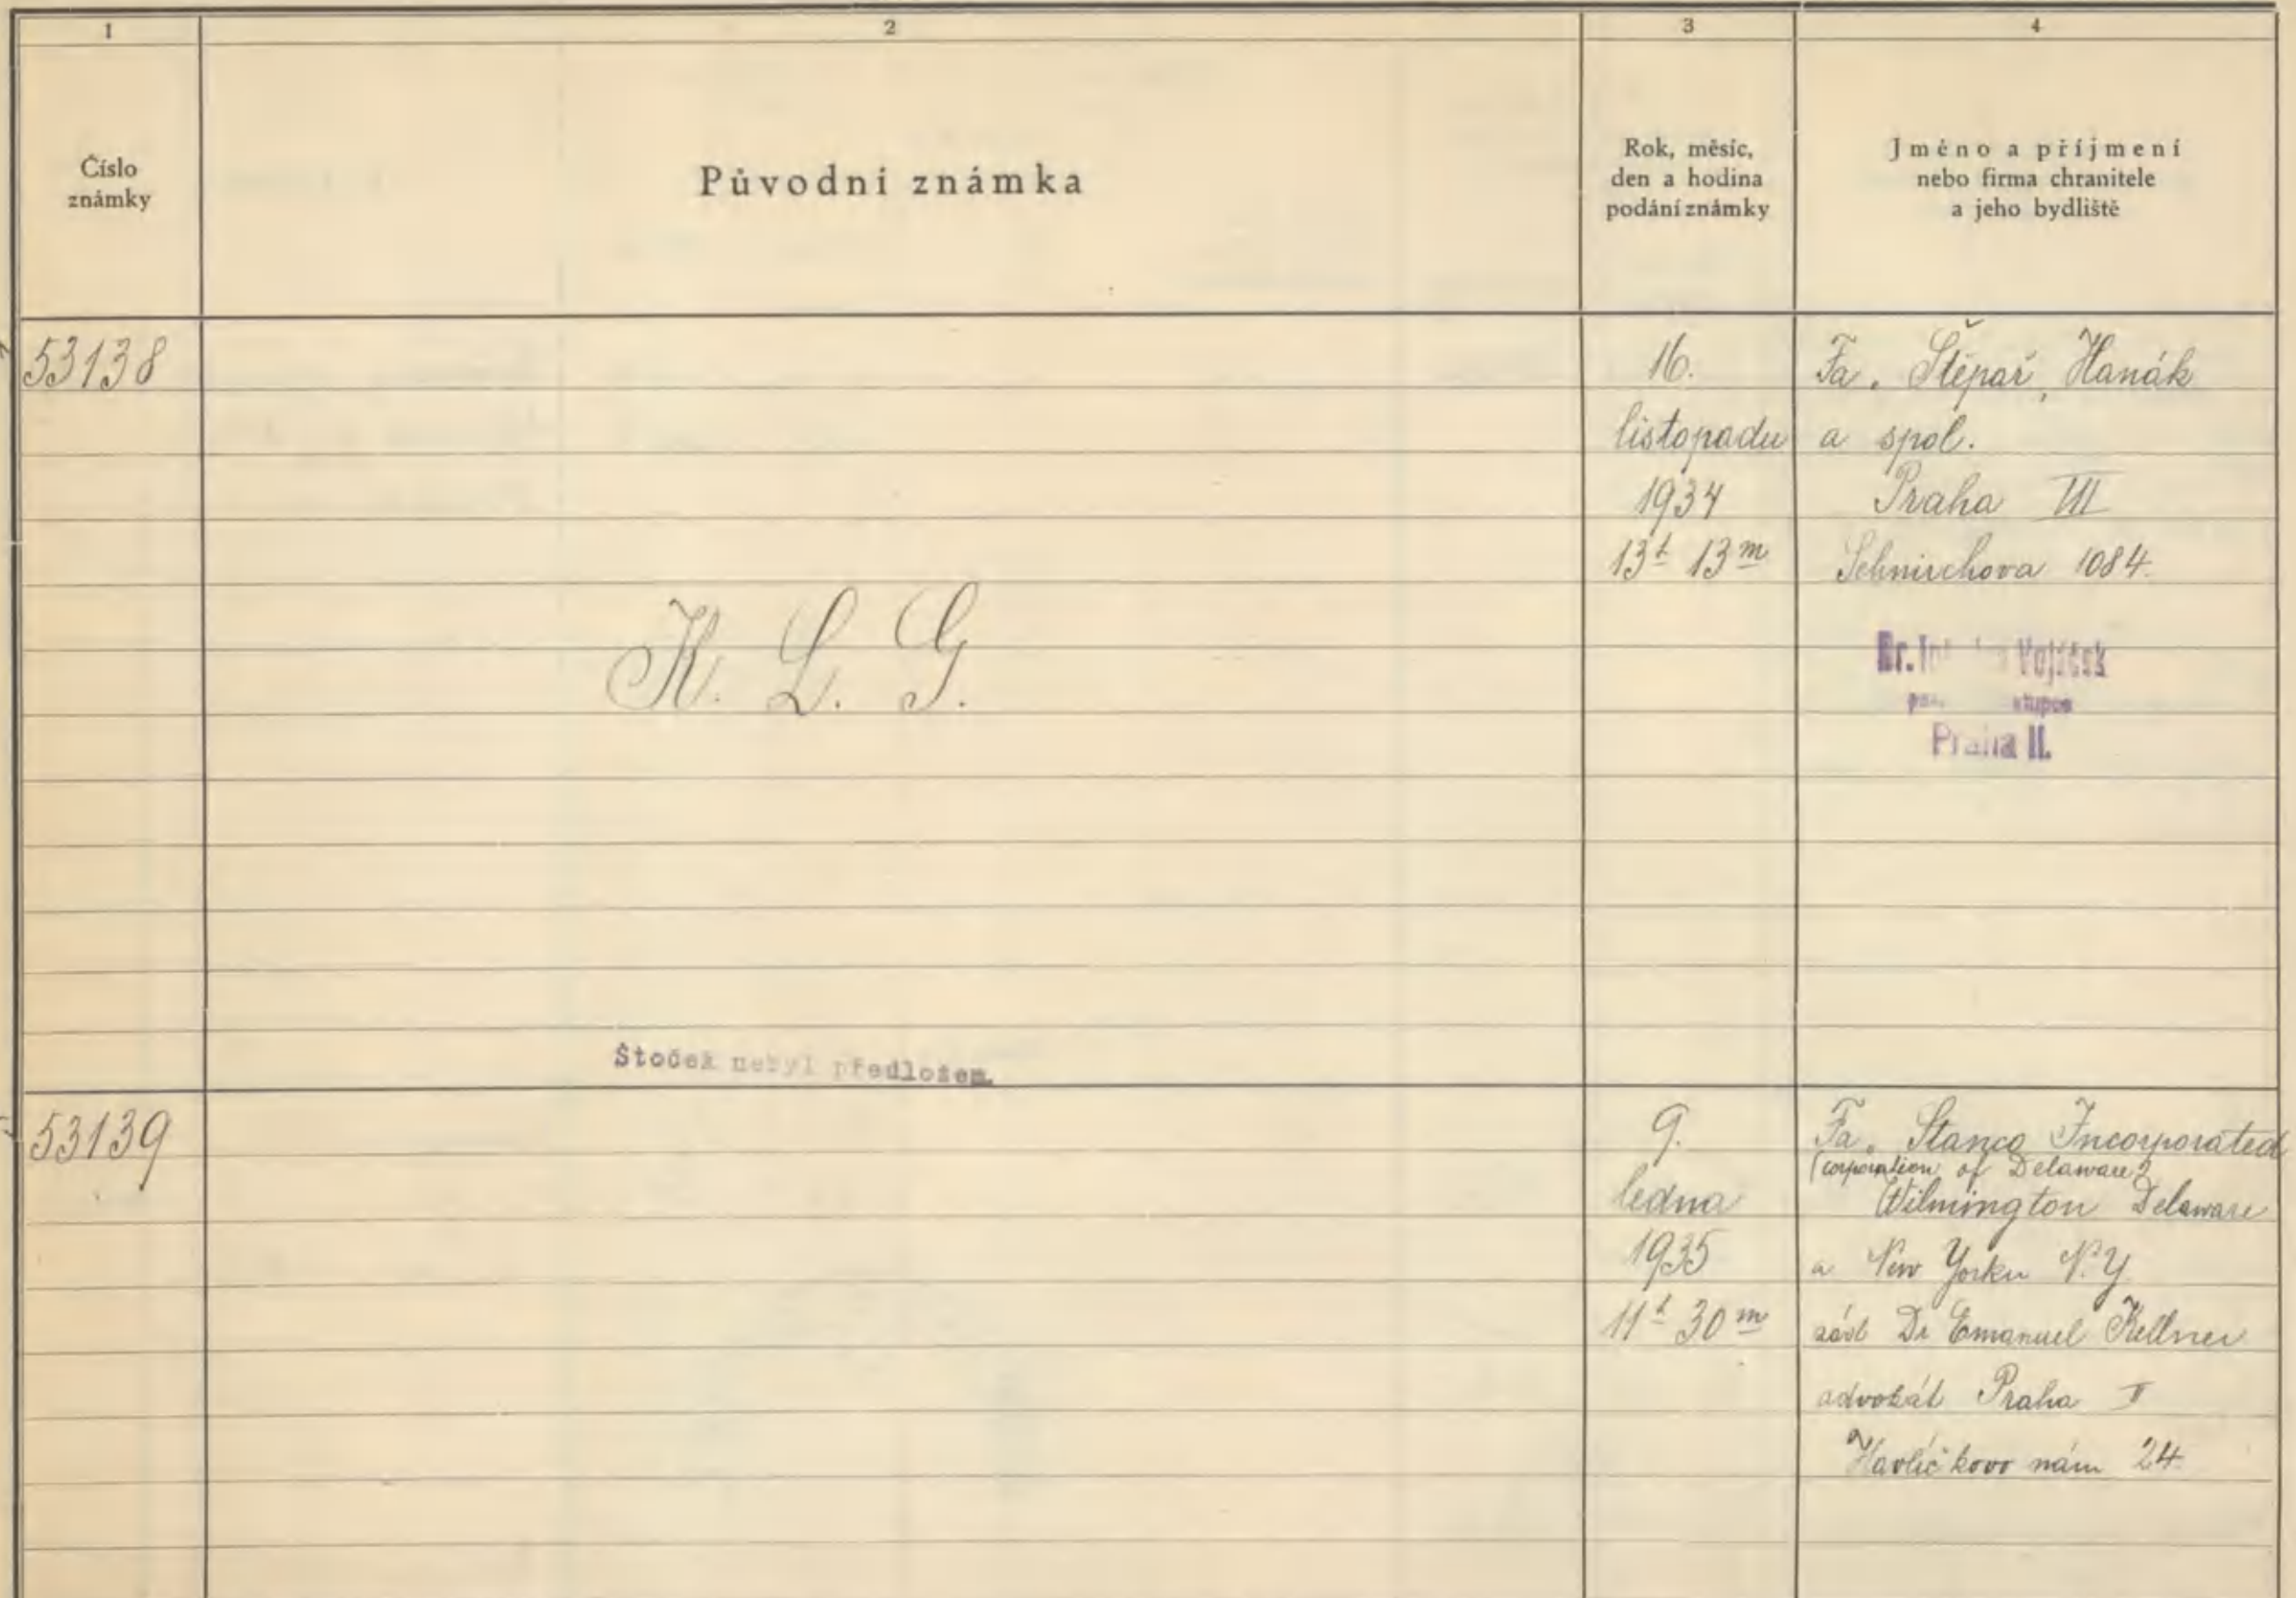 1
2
3
4
Číslo
známky
Původní známka
Rok, měsíc,
den a hodina
podání známky
Jméno a příjmení
nebo firma chranitele
a jeho bydliště
53138
K. L. G.
Štoček nebyl předložen.
16.
listopadu
1934
13h 13m
Fa. Štěpař, Hanák
a spol.
Praha VII
Schnirchova 1084.
Dr. Vojáček
Praha II.
53139
9.
ledna
1935
11h 30m
Fa. Stanco Incorporated
(corporation of Delaware)
Wilmington Delaware
a New Yorku N.Y.
zást Dr Emanuel Kellner
advokát Praha II
Havlíčkovo nám 24.